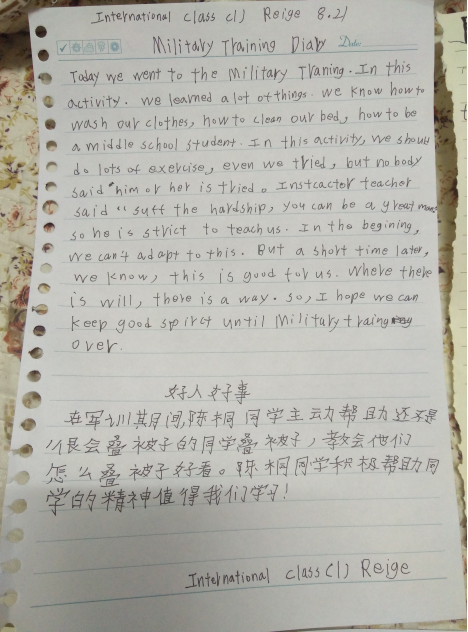 International class (1) Reige 8.21
Military Training Diary
Today we went to the Military Traning. In this
activity. we learned a lot of things. we know how to
wash our clothes, how to clean our bed, how to be
a middle school student. In this activity, we should
do lots of exercise, even we tried, but nobody
said "him or her is tried. Instcactor teacher
said "suff the hardship, you can be a great man,
so he is strict to teach us. In the begining,
we can't adapt to this. But a short time later,
we know, this is good for us. Where there
is will, there is a way. so, I hope we can
keep good spirct until Military traing
over.
好人好事
在军训其月间,陈桐同学主动帮助还不是
很会叠被子的同学叠被子,教会他们
怎么叠被子好看。陈桐同学积极帮助同
学的精神值得我们学习!
International class (1) Reige